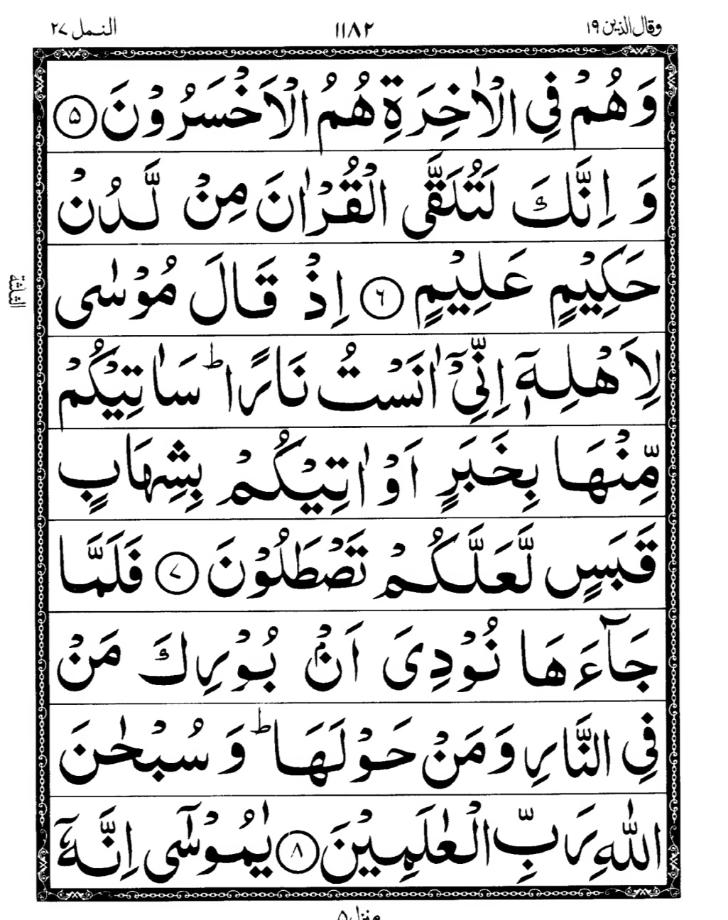 وقال الذین ١٩ ١١٨٢ النمل ٢٧
وَهُمْ فِی الْاٰخِرَةِ هُمُ الْاَخْسَرُوْنَ ۝٥
وَ اِنَّكَ لَتُلَقَّی الْقُرْاٰنَ مِنْ لَّدُنْ
حَكِیْمٍ عَلِیْمٍ ۝٦ اِذْ قَالَ مُوْسٰی
لِاَهْلِهٖۤ اِنِّیْۤ اٰنَسْتُ نَارًا ؕ سَاٰتِیْكُمْ
مِّنْهَا بِخَبَرٍ اَوْ اٰتِیْكُمْ بِشِهَابٍ
قَبَسٍ لَّعَلَّكُمْ تَصْطَلُوْنَ ۝٧ فَلَمَّا
جَآءَهَا نُوْدِیَ اَنْۢ بُوْرِكَ مَنْ
فِی النَّارِ وَمَنْ حَوْلَهَا ؕ وَ سُبْحٰنَ
اللّٰهِ رَبِّ الْعٰلَمِیْنَ ۝٨ یٰمُوْسٰۤی اِنَّهٗۤ
الثلثة
منزل ٥